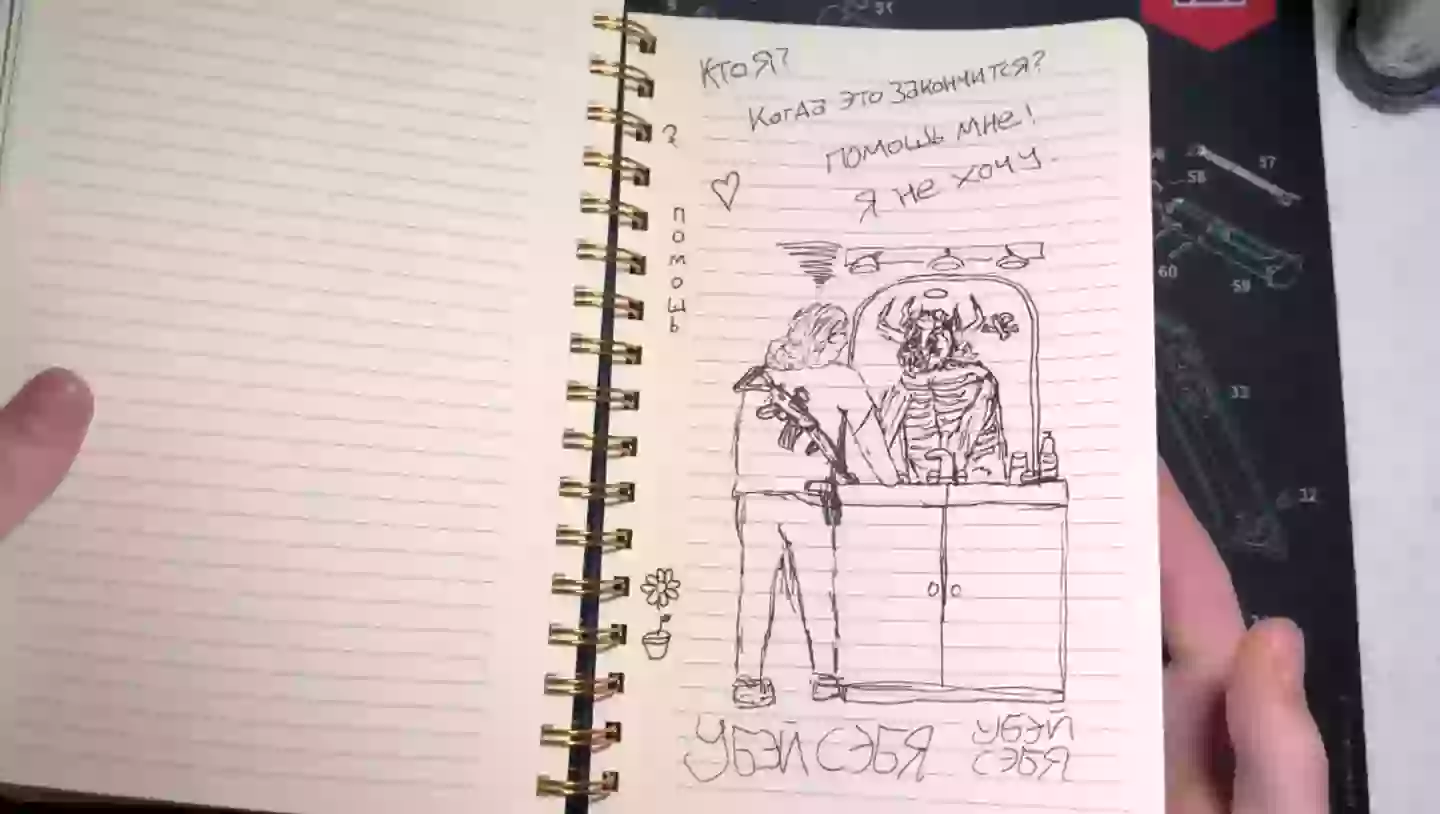 Кто я?
Когда это закончится?
помошь мне!
Я не хочу.
?
помошь
УБЭЙ СЭБЯ
УБЭЙ
СЭБЯ
57
58
60
59
33
32